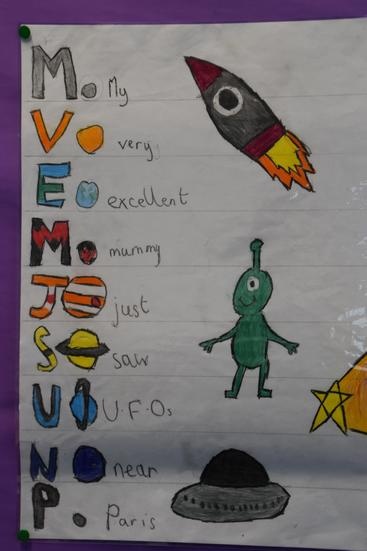 M. My
V very
E excellent
M. mummy
J just
S saw
U U.F.Os
N near
P. Paris